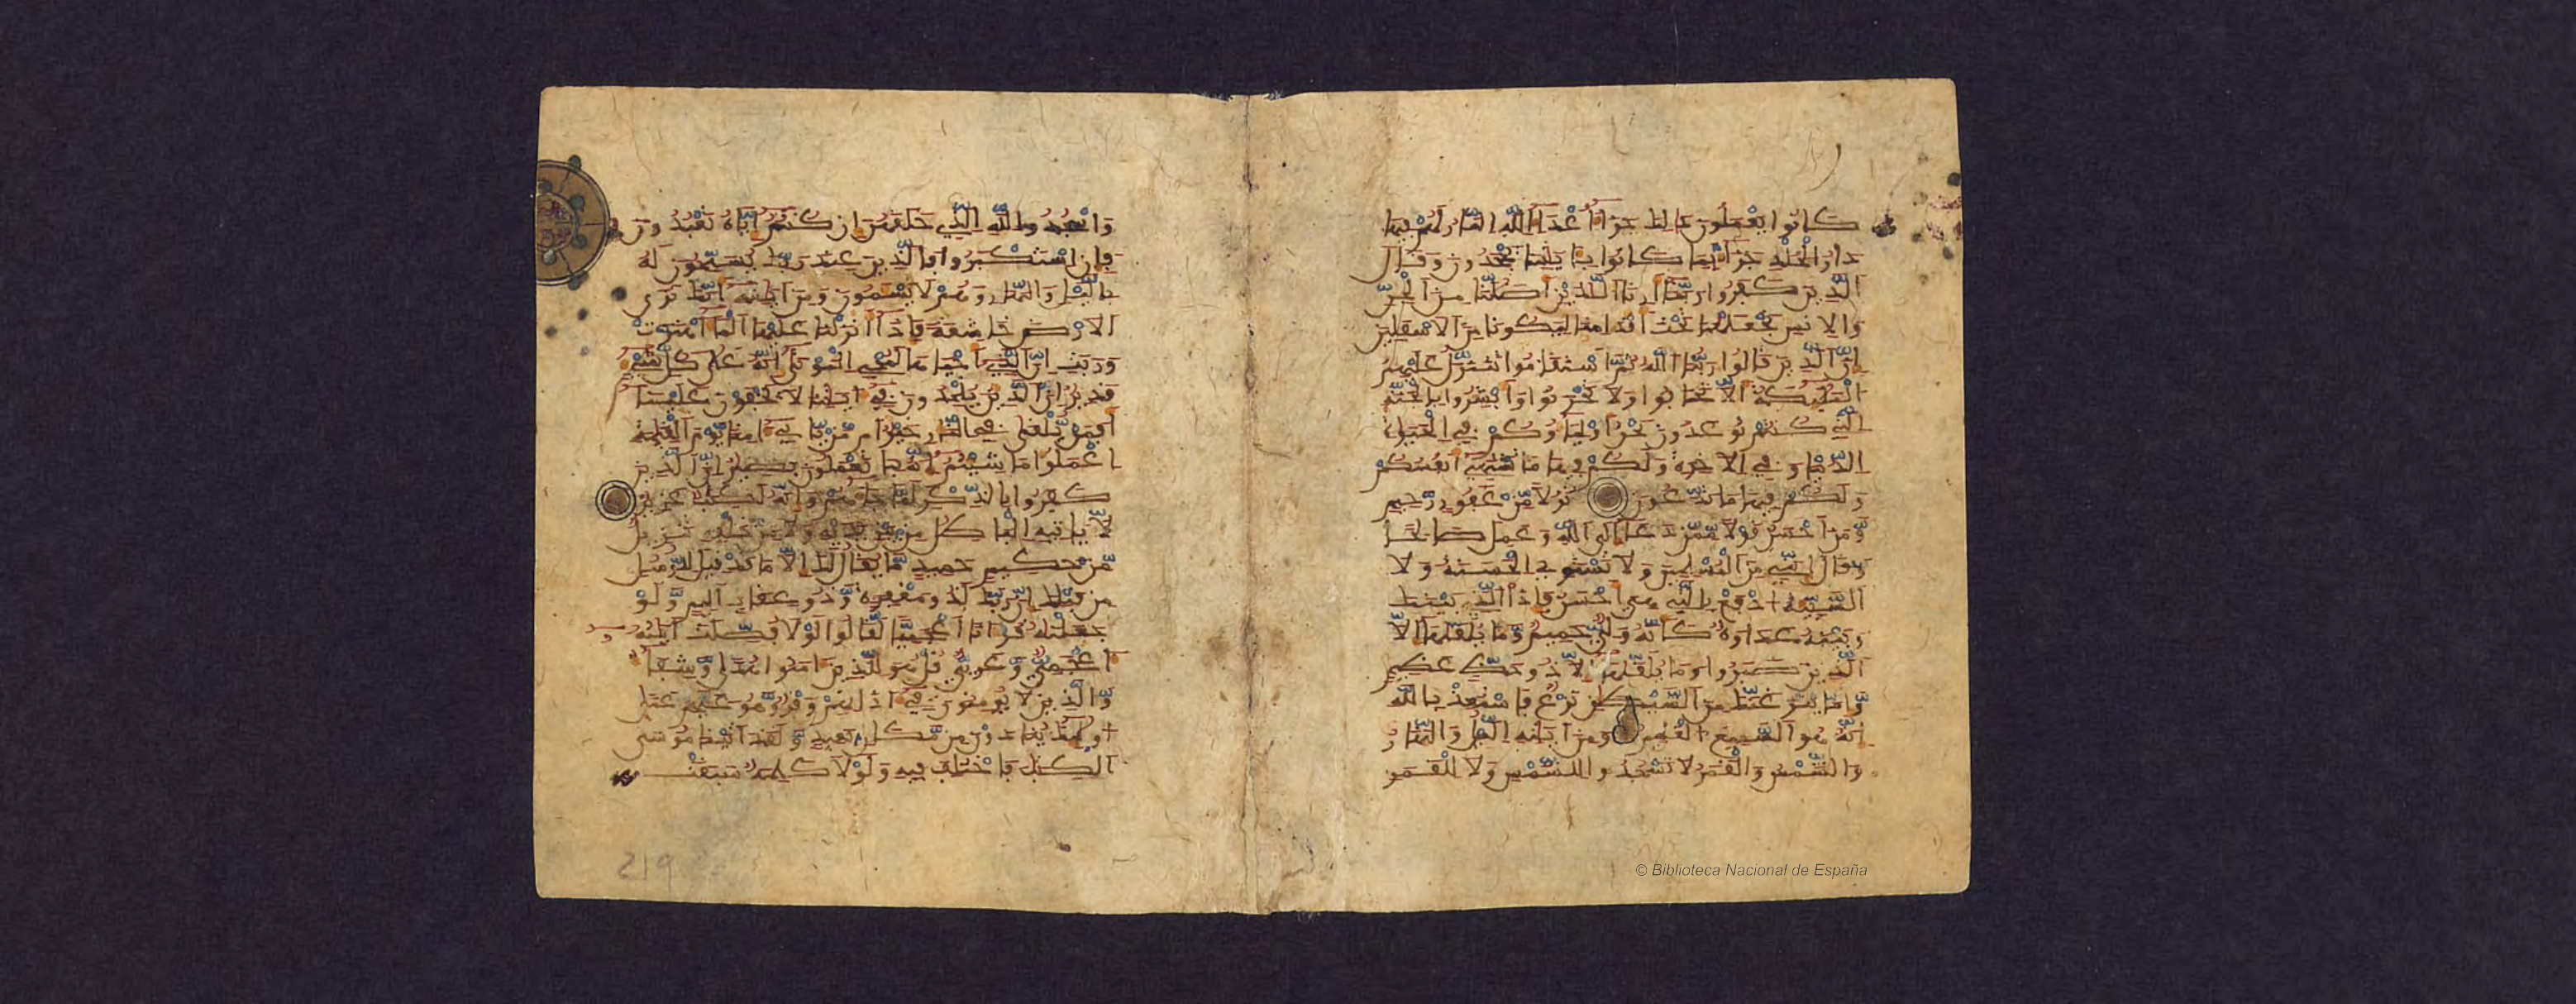 كانوا يعملون ذلك جزآء اعدآء الله النار لهم فيها
دار الخلد جزآء بما كانوا بايتنا يجحدون وقال
الذين كفروا ربنا ارنا الذين اضلنا من الجن
والانس نجعلهما تحت اقدامنا ليكونا من الاسفلين
ان الذين قالوا ربنا الله ثم استقموا تتنزل عليهم
الملئكة الا تخافوا ولا تحزنوا وابشروا بالجنة
التي كنتم توعدون نحن اوليآؤكم في الحيوة
الدنيا وفي الاخرة ولكم فيها ما تشتهي انفسكم
ولكم فيها ما تدعون نزلا من غفور رحيم
ومن احسن قولا ممن دعآ الى الله وعمل صالحا
وقال انني من المسلمين ولا تستوي الحسنة ولا
السيئة ادفع بالتي هي احسن فاذا الذي بينك
وبينه عداوة كانه ولي حميم وما يلقيها الا
الذين صبروا وما يلقيها الا ذو حظ عظيم
واما ينزغنك من الشيطن نزغ فاستعذ بالله
انه هو السميع العليم ومن ايته اليل والنهار
والشمس والقمر لا تسجدوا للشمس ولا للقمر
واسجدوا لله الذي خلقهن ان كنتم اياه تعبدون
فان استكبروا فالذين عند ربك يسبحون له
باليل والنهار وهم لا يسئمون ومن ايته انك ترى
الارض خاشعة فاذآ انزلنا عليها المآء اهتزت
وربت ان الذي احياها لمحي الموتى انه على كل شيء
قدير ان الذين يلحدون في ايتنا لا يخفون علينا
افمن يلقى في النار خير ام من ياتي امنا يوم القيمة
اعملوا ما شئتم انه بما تعملون بصير ان الذين
كفروا بالذكر لما جآءهم وانه لكتب عزيز
لا ياتيه البطل من بين يديه ولا من خلفه تنزيل
من حكيم حميد ما يقال لك الا ما قد قيل للرسل
من قبلك ان ربك لذو مغفرة وذو عقاب اليم ولو
جعلنه قرانا اعجميا لقالوا لولا فصلت ايته
اعجمي وعربي قل هو للذين امنوا هدى وشفآء
والذين لا يومنون في اذانهم وقر وهو عليهم عمى
اولئك ينادون من مكان بعيد ولقد اتينا موسى
الكتب فاختلف فيه ولولا كلمة سبقت
219
© Biblioteca Nacional de España